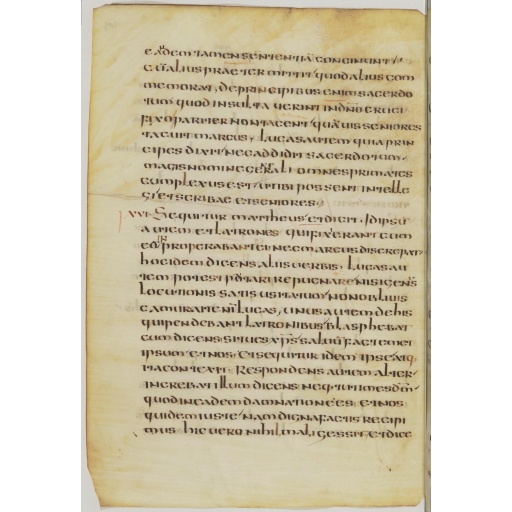 eadem tamen sententia concinunt
cur alius praetermittit quod alius com
memorat, de principibus enim sacerdo
tum quod insultaverint in dno cruci
fixo pariter non tacent quavis seniores
tacuit marcus, lucas autem quia prin
cipes dixit nec addidit sacerdotum
magis nomine generali omnes primates
complexus est ut ibi possent intelle
gi et scribae et seniores
XVI Sequitur mattheus et dicit Idipsu
autem et latrones qui fixi erant cum
eo properabant ei nec marcus discrepat
hoc idem dicens aliis verbis, lucas au
tem potest putari repugnare nisi genus
locutionis satis usitatum non obliuis
camur ait enim lucas, unus autem de his
qui pendebant latronibus blasphebat
eum dicens si tu es xps salvum fac temet
ipsum et nos Et sequitur idem ipse atq
ita contexit Respondens autem alter
increbat illum dicens neq tu times dm
quod in eadem damnatione es et nos
quidem iuste nam digna factis recipi
mus hic vero nihil mali gessit et dice